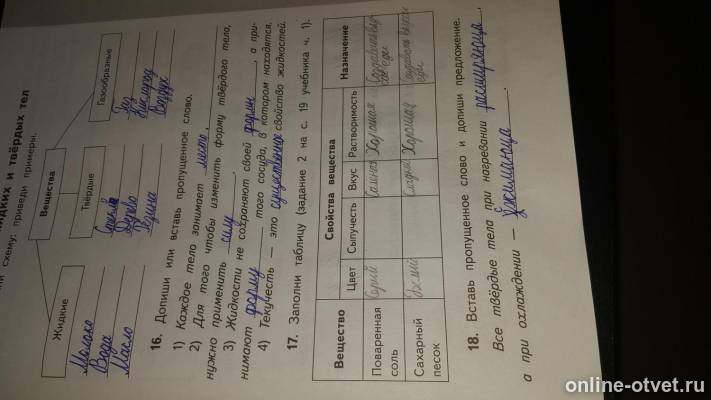 жидких и твёрдых тел
схему: приведи примеры.
Вещества
Жидкие
Твёрдые
Газообразные
Молоко
Вода
Масло
Стекло
Дерево
Резина
Газ
Кислород
Воздух
16. Допиши или вставь пропущенное слово.
1) Каждое тело занимает место.
2) Для того чтобы изменить форму твёрдого тела,
нужно применить силу.
3) Жидкости не сохраняют своей формы, а при-
нимают форму того сосуда, в котором находятся.
4) Текучесть — это существенное свойство жидкостей.
17. Заполни таблицу (задание 2 на с. 19 учебника ч. 1).
Вещество Свойства вещества Назначение
Цвет Сыпучесть Вкус Растворимость
Поваренная соль Серий Хорошая еди
Сахарный песок Хорошая еди
18. Вставь пропущенное слово и допиши предложение.
Все твёрдые тела при нагревании расширяюца,
а при охлаждении —
online-otvet.ru